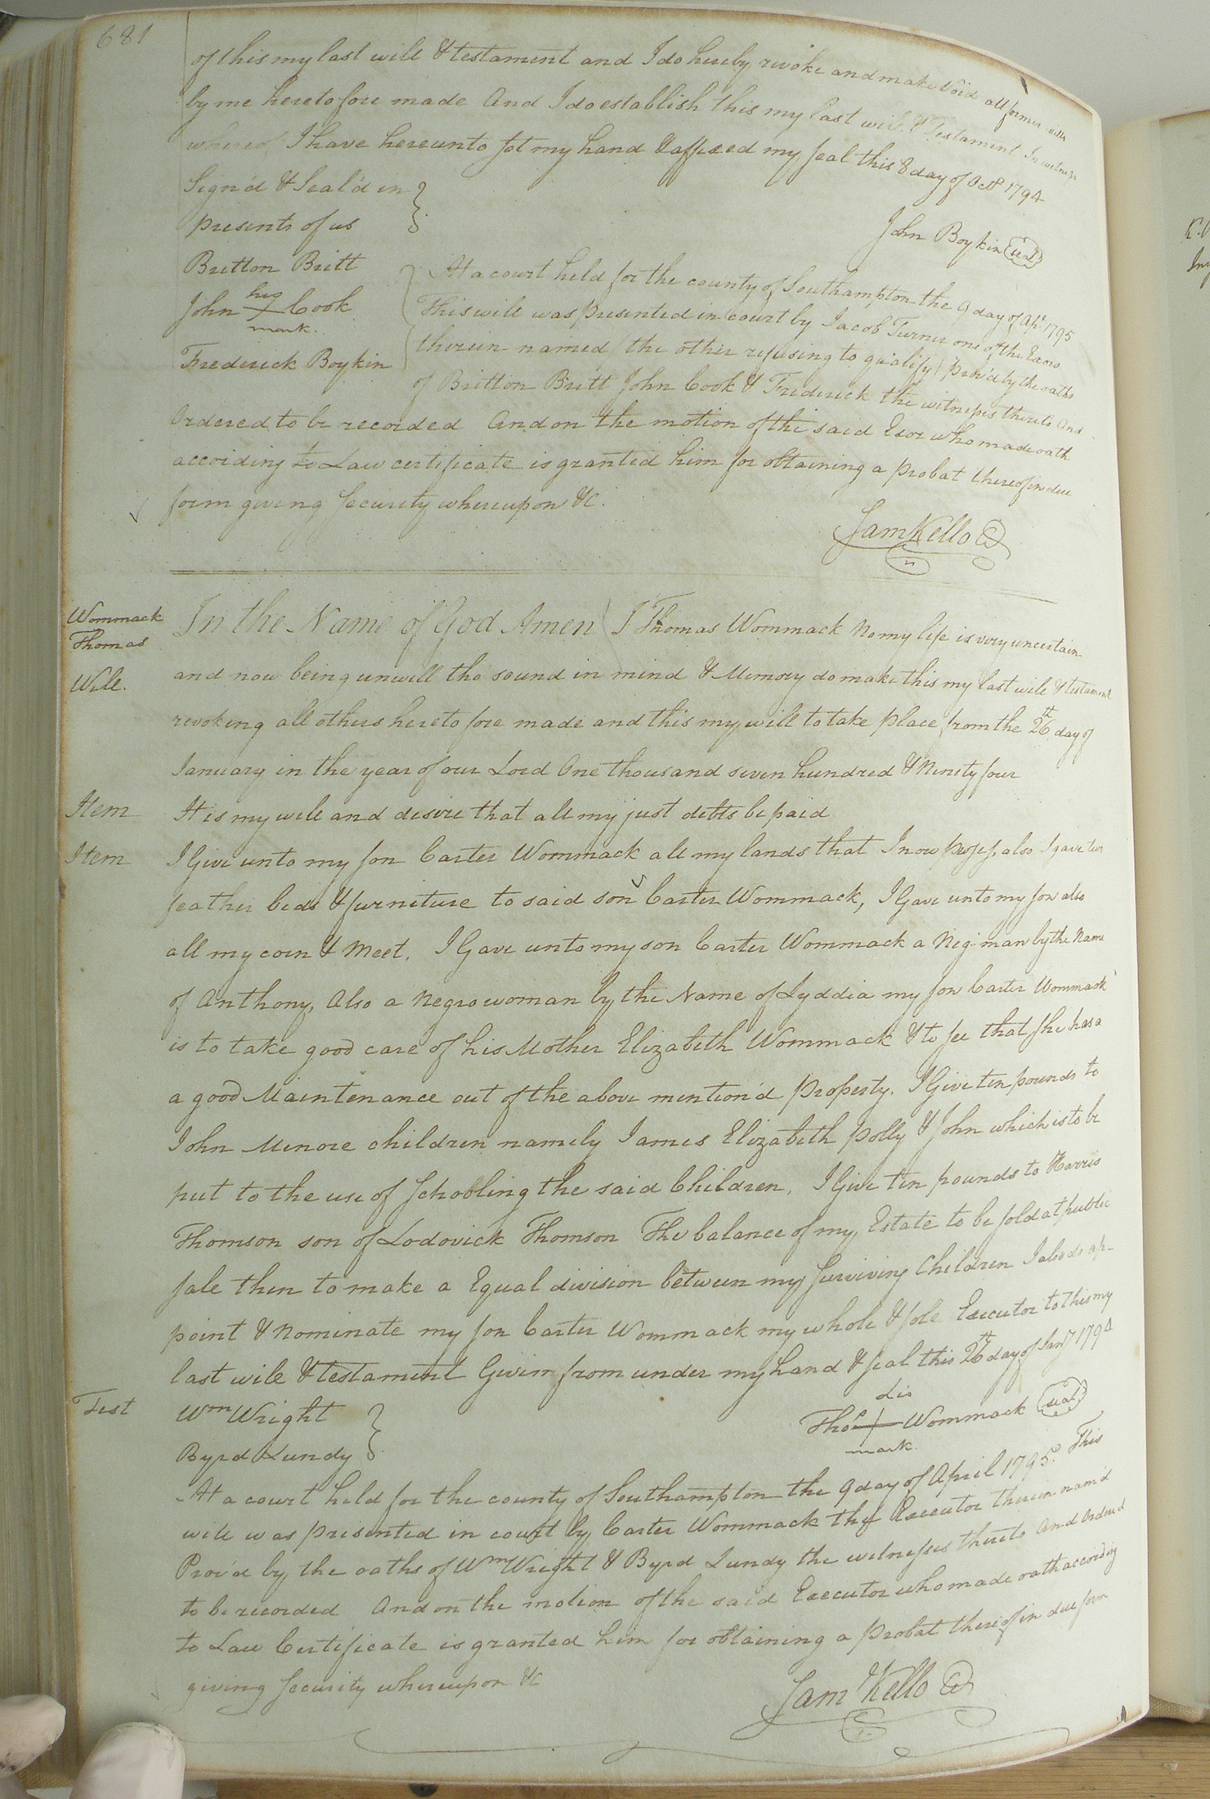 681
of this my last will & testament and I do hereby revoke and make Void all former wills
by me heretofore made And I do establish this my last will & Testament In witness
whereof I have hereunto set my hand & affixed my seal this 8 day of Octr 1794
Sign'd & Seal'd in
presents of us
John Boykin seal
Britton Britt
John his Cook
mark.
Frederick Boykin
At a court held for the county of Southampton the 9 day of Apl. 1795
This will was presented in court by Jacob Turner one of the Exors
therein named (the other refusing to qualify) Prov'd by the oaths
of Britton Britt John Cook & Frederick the witnesses thereto And
Ordered to be recorded And on the motion of the said Exor who made oath
according to Law certificate is granted him for obtaining a probat thereof in due
form giving Security whereupon &C.
Sam Kello
Wommack
Thomas
Will.
In the Name of God Amen I Thomas Wommack my life is very uncertain
and now being unwill tho sound in mind & Memory do make this my last will & testament
revoking all others heretofore made and this my will to take place from the 26th day of
January in the year of our Lord One thousand seven hundred & Ninety four
Item It is my will and desire that all my just debts be paid
Item I Give unto my son Carter Wommack all my lands that I now Possess, also I gave two
feather beds & furniture to said son Carter Wommack, I Gave unto my son also
all my corn & Meet. I Gave unto my son Carter Wommack a Neg. man by the Name
of Anthony, Also a Negro woman by the Name of Lyddia my son Carter Wommack
is to take good care of his Mother Elizabeth Wommack & to see that she has a
a good Maintenance out of the above mention'd Property. I Give ten pounds to
John Minore children namely James Elizabeth Polly & John which is to be
put to the use of Schooling the said Children. I Give ten pounds to Harris
Thomson son of Lodovick Thomson The balance of my Estate to be sold at public
sale then to make a Equal division between my surviving Children I also do ap-
point & Nominate my son Carter Wommack my whole & sole Executor to this my
last will & testament Givin from under my hand & seal this 26th day of Jany 1794
Test Wm Wright
Byrd Lundy
his
Thos Wommack seal
mark
At a court held for the county of Southampton the 9 day of April 1795. This
will was presented in court by Carter Wommack the Executor therein nam'd
Prov'd by the oaths of Wm Wright & Byrd Lundy the witnesses thereto And Ordered
to be recorded And on the motion of the said Executor who made oath according
to Law Certificate is granted him for obtaining a Probat thereof in due form
giving Security whereupon &C
Saml Kello